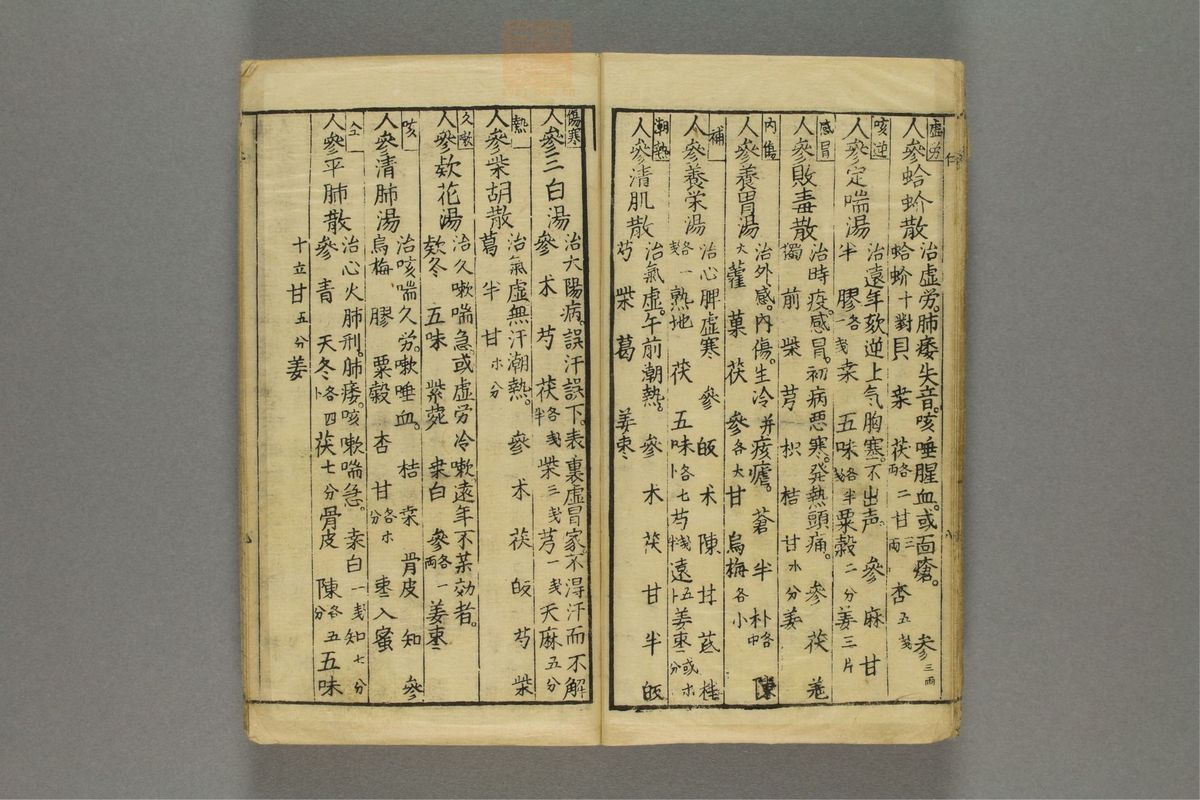 虚労
人參蛤蚧散
治虚労。肺痿失音。咳唾腥血。或面瘡。
蛤蚧十對貝 桒 茯各二兩甘三兩 杏五戔 參三兩
咳逆
人參定喘湯
治遠年欬逆上气胸塞。不出声。 參 麻 甘
半 膠各一戔桒 五味各半戔粟殼二分姜三片
感冒
人參敗毒散
治時疫。感冒。初病悪寒。発熱頭痛。 參 茯
獨 前 柴 芎 枳 桔 甘 分姜
内傷
人參養胃湯
治外感。内傷。生冷并痎瘧。 蒼 半 朴各中 陳
大藿 菓 茯 參各大甘 烏梅各小
補
人參養栄湯
治心脾虚寒 參 皈 术 陳 芪 桂
各一戔熟地 茯 五味各七卜芍戔半遠五卜姜枣
潮熱
人參清肌散
治氣虚。午前潮熱。 參 术 茯 甘 半 皈
芍 柴 葛 姜枣
傷寒
人參三白湯
治大陽病。誤汗誤下。表裏虚冒家。不得汗而不解
參 术 芍 茯各戔半柴三戔芎一戔天麻五分
熱
人參柴胡散
治氣虚無汗潮熱。 參 术 茯 皈 芍 柴
葛 半 甘 分
久嗽
人參欵花湯
治久嗽喘急或虚労冷嗽。遠年不菜効者。
欵冬 五味 紫菀 桒白 參各一兩 姜枣
咳
人參清肺湯
治咳喘久労。嗽唾血。 桔 桒 骨皮 知 參
烏梅 膠 粟殼 杏 甘各分 枣入蜜
仝
人參平肺散
治心火肺刑。肺痿。咳嗽喘急。 桒白一戔知七分
參 青 天冬各四卜茯七分骨皮 陳各五分五味
十立甘五分姜